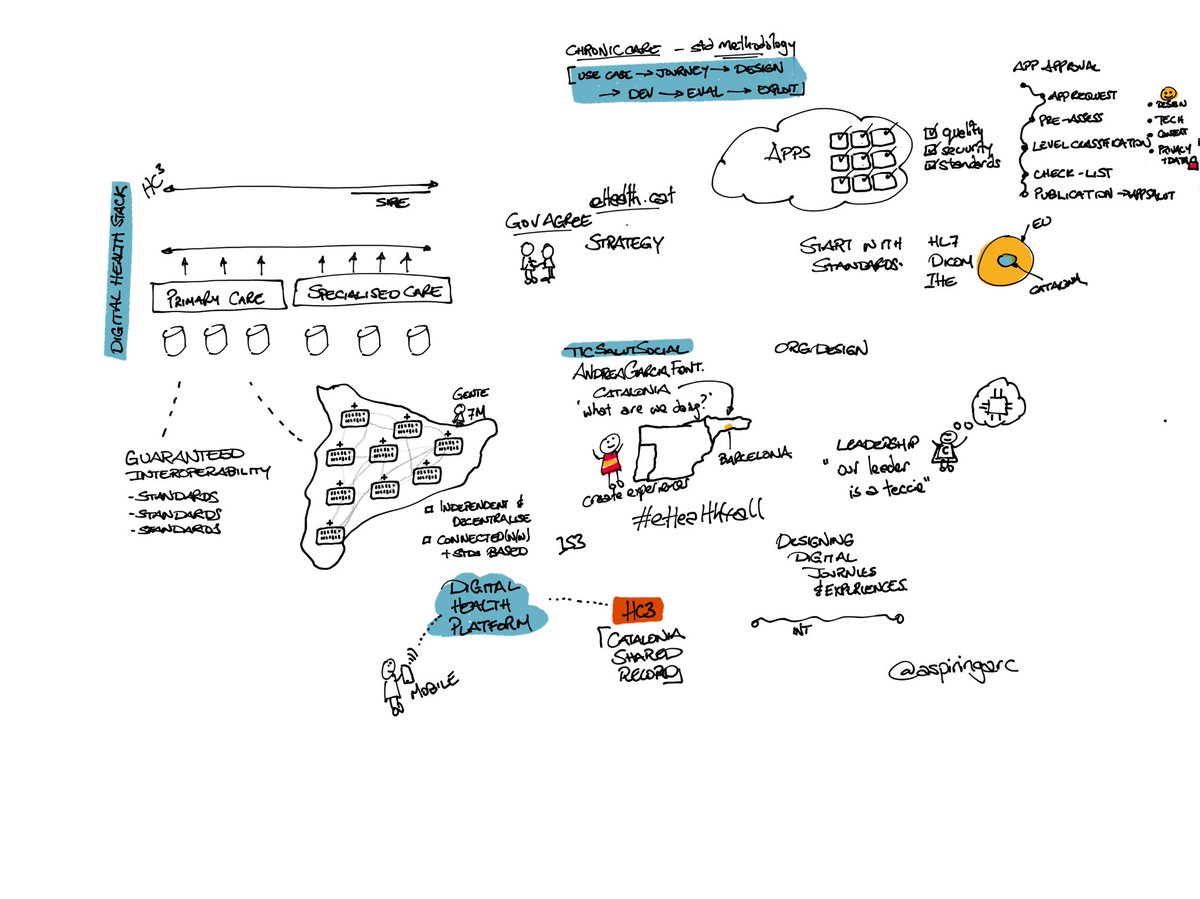 CHRONIC CARE - std methodology
[USE CASE → JOURNEY → DESIGN
→ DEV → EVAL → EXPLOIT]
APP APPROVAL
APP REQUEST
PRE-ASSESS
LEVEL CLASSIFICATION
CHECK-LIST
PUBLICATION → APPSALUT
• DESIGN
• TECH
• CONTENT
• PRIVACY
+ DATA
APPS
quality
security
standards
HC3
SIRE
DIGITAL HEALTH STACK
PRIMARY CARE
SPECIALISED CARE
eHealth.cat
GOV AGREE
STRATEGY
START WITH
STANDARDS.
HL7
DICOM
IHE
EU
CATALONIA
GUARANTEED
INTEROPERABILITY
- STANDARDS
- STANDARDS
- STANDARDS
GENTE
7M
INDEPENDENT &
DECENTRALISE
CONNECTED (N/W)
+ STDS BASED
IS3
TICSALUTSOCIAL
ANDREA GARCIA FONT.
CATALONIA
"what are we doing?"
BARCELONA
create experiences
#eHealth4all
ORG/DESIGN
LEADERSHIP
"our leader
is a teccie"
C
DESIGNING
DIGITAL
JOURNIES
& EXPERIENCES.
INT
DIGITAL
HEALTH
PLATFORM
MOBILE
HC3
[CATALONIA
SHARED
RECORD]
@aspiringarc